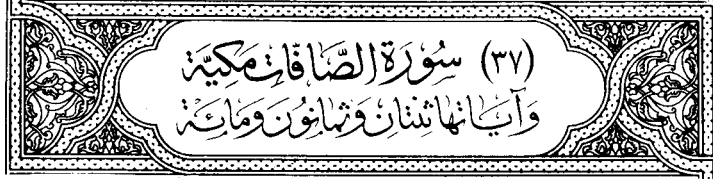 (٣٧) سُورَةُ الصَّافَّاتِ مَكِيَّة
وَآيَاتُهَا ثِنْتَانِ وَثَمَانُونَ وَمَائَة